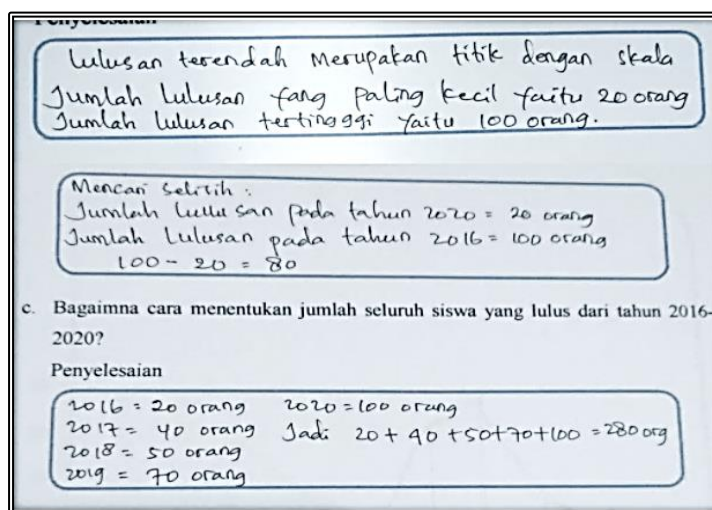 Penyelesaian
Lulusan terendah Merupakan titik dengan skala
Jumlah Lulusan yang paling kecil yaitu 20 orang
Jumlah lulusan tertinggi yaitu 100 orang.
Mencari Selisih :
Jumlah Lulusan pada tahun 2020 = 20 orang
Jumlah Lulusan pada tahun 2016 = 100 orang
100 - 20 = 80
c. Bagaimna cara menentukan jumlah seluruh siswa yang lulus dari tahun 2016-
2020?
Penyelesaian
2016 = 20 orang 2020 = 100 orang
2017 = 40 orang Jadi 20 + 40 + 50 + 70 + 100 = 280 org
2018 = 50 orang
2019 = 70 orang